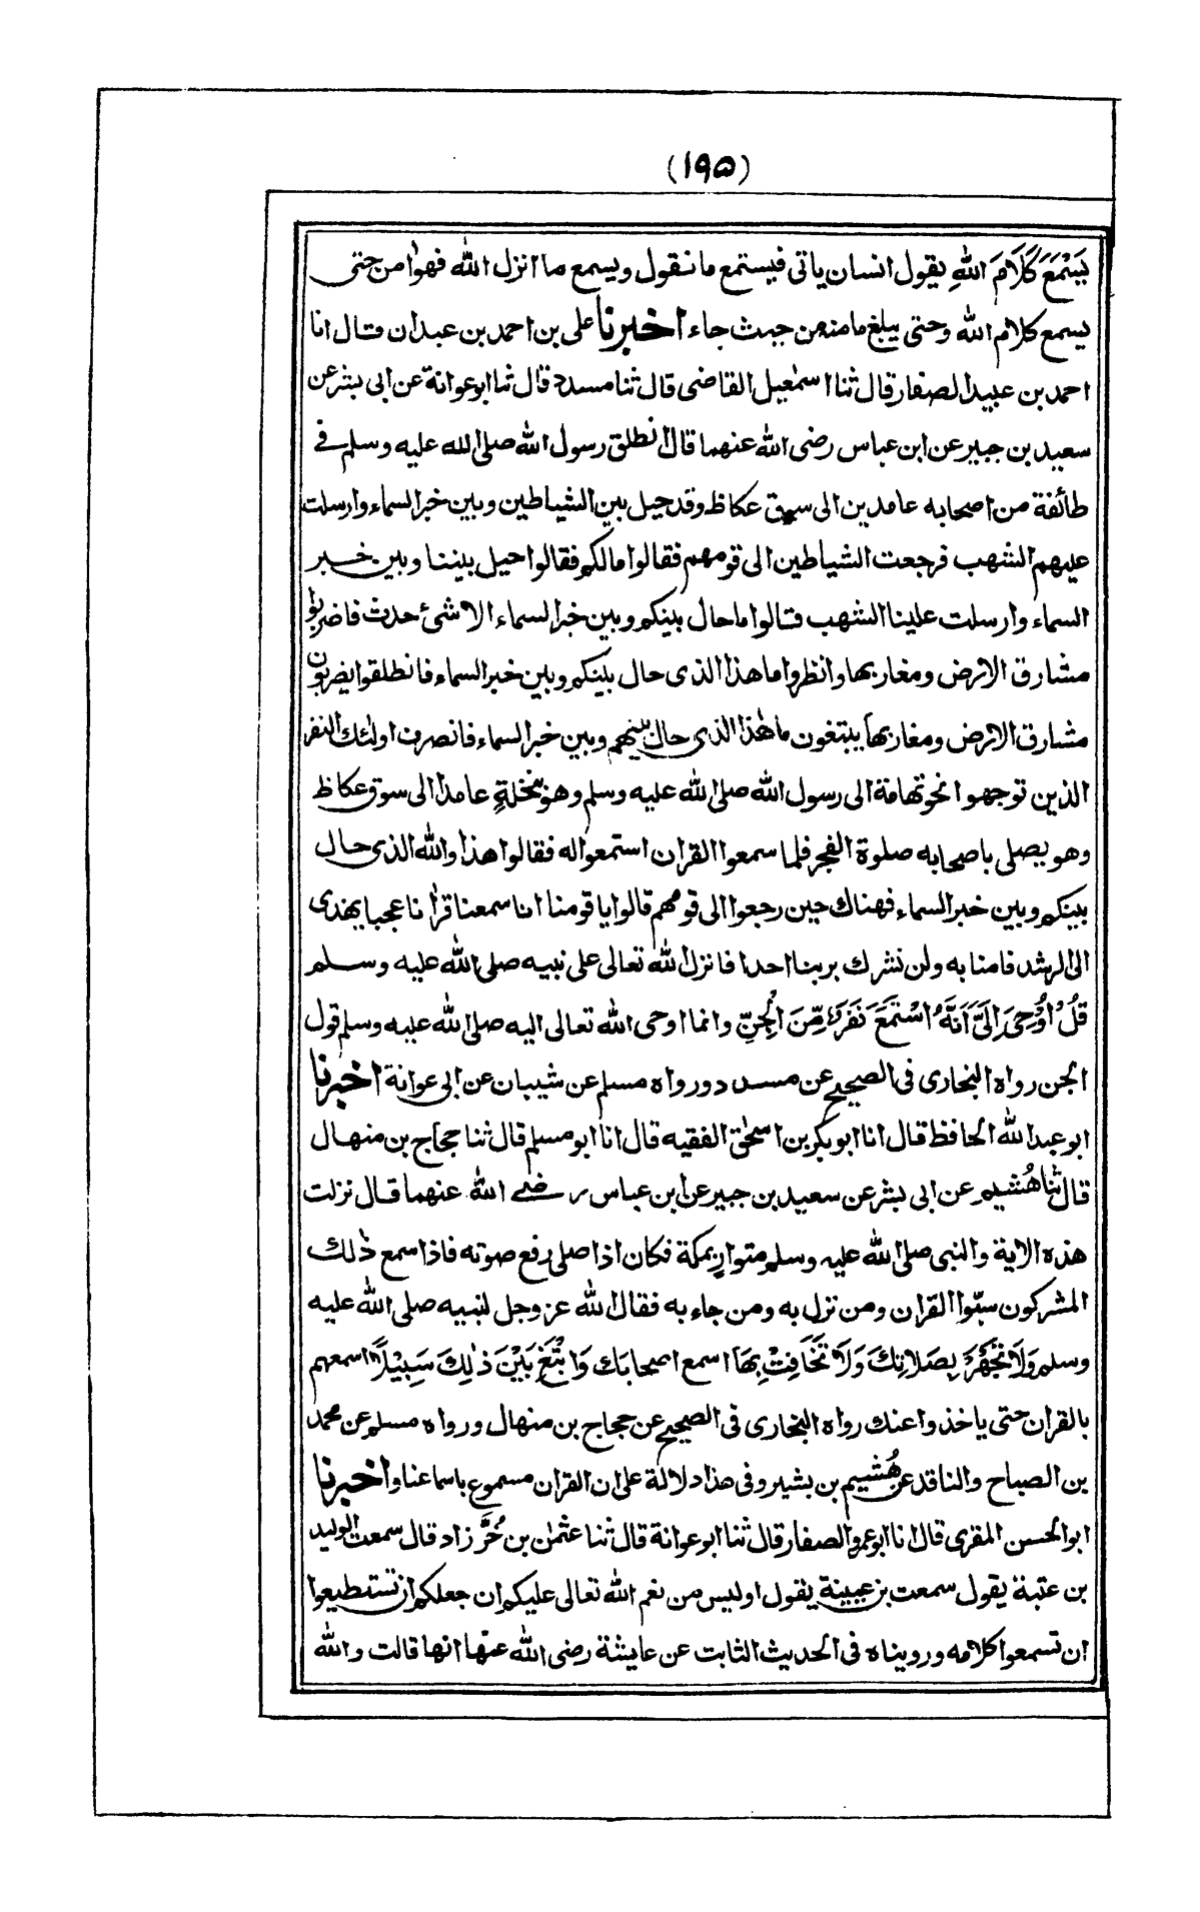 (۱۹۵)
يَسْمَعَ كَلَامَ اللهِ يقول انسان ياتى فيستمع ما نقول ويسمع ما انزل الله فهوا من حتى
يسمع كلام الله وحتى يبلغ مامنه من حيث جاء اخبرنا على بن احمد بن عبدان قال انا
احمد بن عبيد الصفار قال ثنا اسمٰعيل القاضى قال ثنا مسدد قال ثنا ابو عوانة عن ابى بشر عن
سعيد بن جبير عن ابن عباس رضى الله عنهما قال انطلق رسول الله صلى الله عليه وسلم فے
طائفة من اصحابه عامدين الى سوق عكاظ وقد حيل بين الشياطين وبين خبر السماء وارسلت
عليهم الشهب فرجعت الشياطين الى قومهم فقالوا مالكم فقالوا حيل بيننا وبين خبر
السماء وارسلت علينا الشهب قالوا ما حال بينكم وبين خبر السماء الا شئ حدث فاضربوا
مشارق الارض ومغاربها وانظروا ما هذا الذى حال بينكم وبين خبر السماء فانطلقوا يضربون
مشارق الارض ومغاربها يبتغون ما هٰذا الذى حال بينهم وبين خبر السماء فانصرف اولٰئك النفر
الذين توجهوا نحو تهامة الى رسول الله صلى الله عليه وسلم وهو بنخلةٍ عامدا الى سوق عكاظ
وهو يصلى باصحابه صلوة الفجر فلما سمعوا القران استمعوا له فقالوا هذا والله الذى حال
بينكم وبين خبر السماء فهناك حين رجعوا الى قومهم قالوا يا قومنا انا سمعنا قرانا عجبا يهدى
الى الرشد فامنا به ولن نشرك بربنا احدا فانزل الله تعالى على نبيه صلى الله عليه وسلم
قُلْ اُوْحِىَ اِلَىَّ اَنَّهُ اسْتَمَعَ نَفَرٌ مِّنَ الْجِنِّ وانما اوحى الله تعالى اليه صلى الله عليه وسلم قول
الجن رواه البخارى فى الصحيح عن مسدد ورواه مسلم عن شيبان عن ابى عوانة اخبرنا
ابو عبد الله الحافظ قال انا ابو بكر بن اسحٰق الفقيه قال انا ابو مسلم قال ثنا حجاج بن منهال
قال ثنا هُشيم عن ابى بشر عن سعيد بن جبير عن ابن عباس رضے الله عنهما قال نزلت
هذه الاية والنبى صلى الله عليه وسلم متوارٍ بمكة فكان اذا صلى رفع صوته فاذا سمع ذٰلك
المشركون سبّوا القران ومن نزل به ومن جاء به فقال الله عز وجل لنبيه صلى الله عليه
وسلم وَلَا تَجْهَرْ بِصَلَاتِكَ وَلَا تُخَافِتْ بِهَا اسمع اصحابك وَابْتَغِ بَيْنَ ذٰلِكَ سَبِيْلًا اسمعهم
بالقران حتى ياخذوا عنك رواه البخارى فى الصحيح عن حجاج بن منهال ورواه مسلم عن محمد
بن الصباح والناقد عن هُشيم بن بشير وفى هذا دلالة على ان القران مسموع باسماعنا واخبرنا
ابو الحسن المقرى قال انا ابو عمرو الصفار قال ثنا ابو عوانة قال ثنا عثمٰن بن خُرَّزاد قال سمعت الوليد
بن عتبة يقول سمعت بن عيينة يقول اوليس من نعم الله تعالى عليكم ان جعلكم ان تستطيعوا
ان تسمعوا كلامه وروينا فى الحديث الثابت عن عايشة رضى الله عنها انها قالت والله